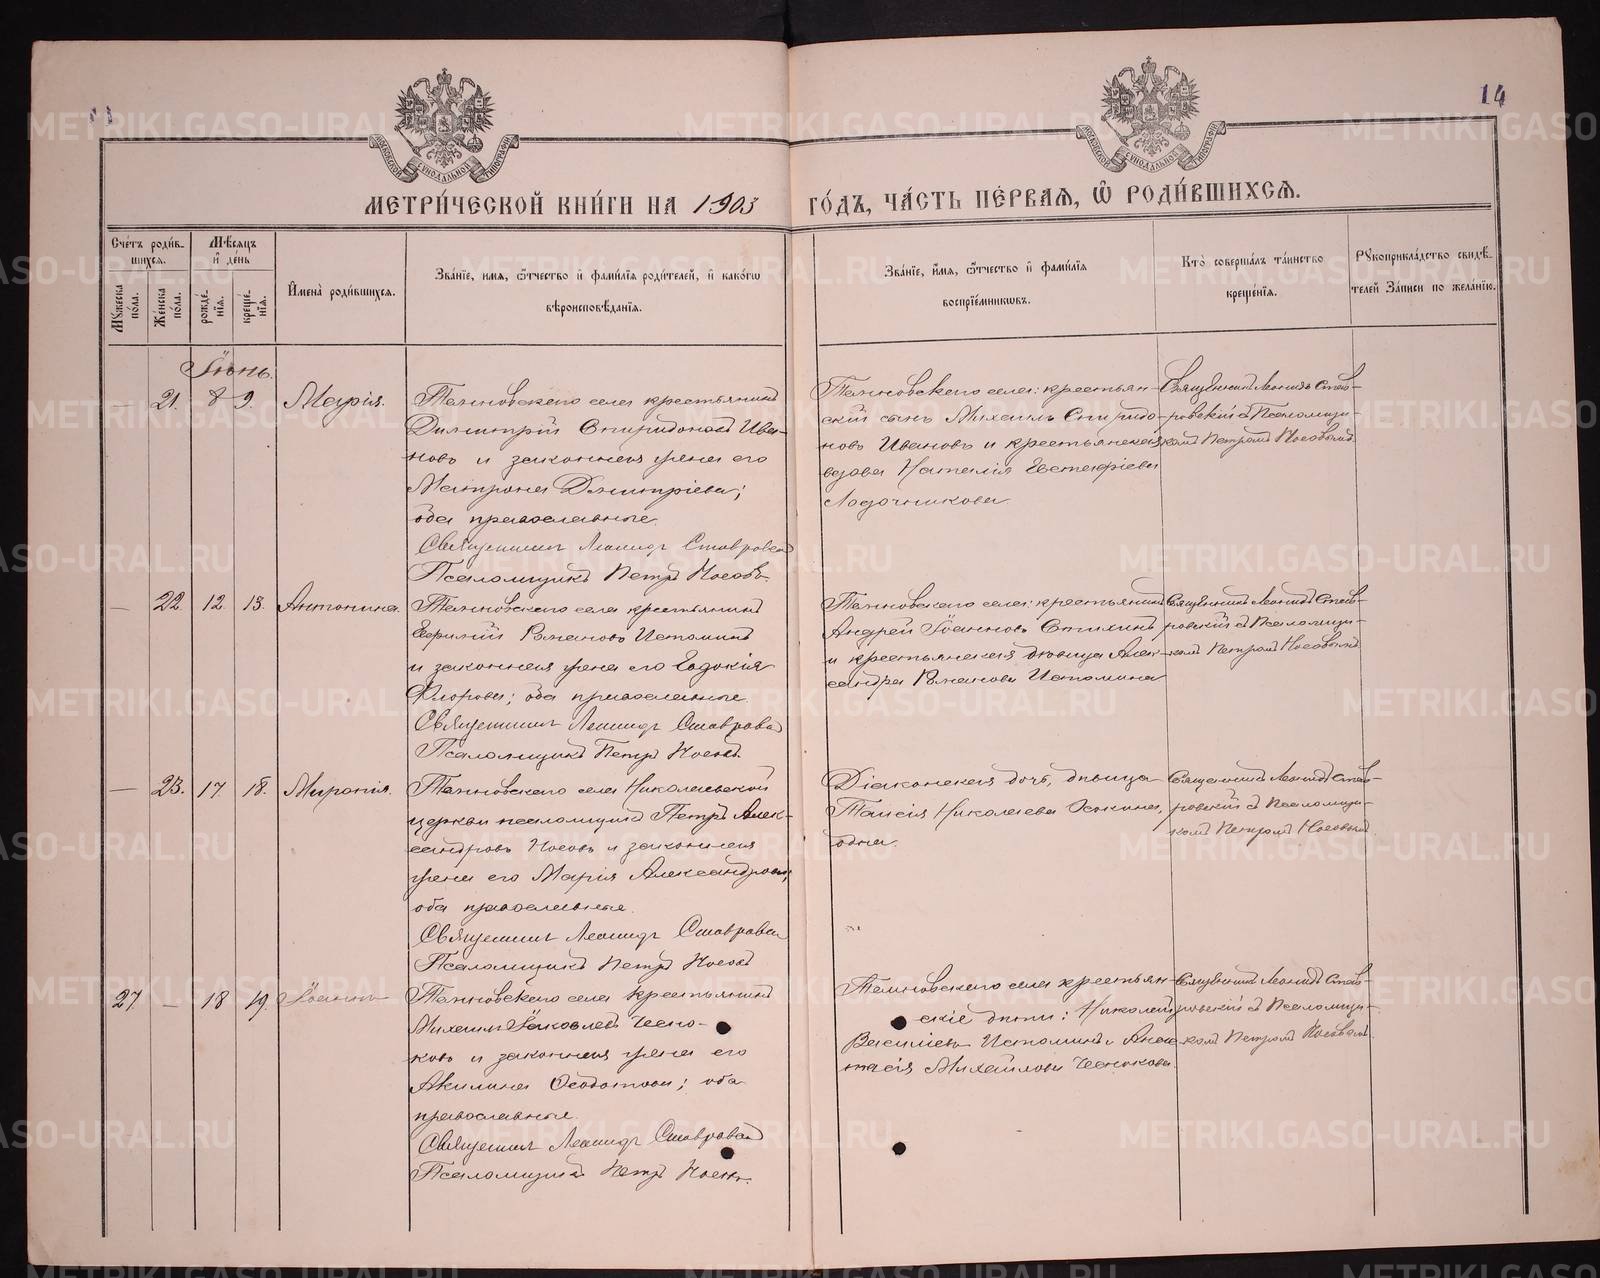 14
МЕТРИ́ЧЕСКОЙ КНИ́ГИ НА 1903 ГО́ДЪ, ЧА́СТЬ ПЕ́РВАѦ, Ѽ РОДИ́ВШИХСѦ.
Сче́тъ роди́в-
шихсѧ.
Мꙋ́жеска по́ла.
Же́нска по́ла.
Мѣ́сѧцъ
и҆ де́нь
рожде́-нїѧ.
креще́-нїѧ.
И҆мена̀ роди́вшихсѧ.
Зва́нїе, и҆мѧ, ѻ҆́тчество и҆ фами́лїѧ роди́телей, и҆ како́гѡ
вѣроисповѣ́данїѧ.
Зва́нїе, и҆́мѧ, ѻ҆́тчество и҆ фами́лїѧ
воспрїе́мникѡвъ.
Кто̀ соверша́лъ та́инство
креще́нїѧ.
Рꙋкоприкла́дство свидѣ́-
телей За́писи по жела́нїю.
Іюнь.
— 21. 8 9. Марія.
Темновскаго села крестьянинъ
Димитрій Спиридоновъ Ива-
новъ и законная жена его
Матрона Димитріева;
оба православные.
Священникъ Леонидъ Ставровскій
Псаломщикъ Петръ Носовъ.
Темновскаго села: крестьян-
скій сынъ Михаилъ Спиридо-
новъ Ивановъ и крестьянская
вдова Наталія Евстафіева
Лодочникова
Священникъ Леонидъ Став-
ровскій съ Псаломщи-
комъ Петромъ Носовымъ.
— 22. 12. 13. Антонина.
Темновскаго села крестьянинъ
Ефимій Романовъ Истоминъ
и законная жена его Евдокія
Флорова; оба православные.
Священникъ Леонидъ Ставровскій
Псаломщикъ Петръ Носовъ.
Темновскаго села: крестьянинъ
Андрей Іоанновъ Стихинъ
и крестьянская дѣвица Алек-
сандра Романова Истомина
Священникъ Леонидъ Став-
ровскій съ Псаломщи-
комъ Петромъ Носовымъ
— 23. 17. 18. Миропія.
Темновскаго села Николаевской
церкви псаломщикъ Петръ Алек-
сандровъ Носовъ и законная
жена его Марія Александрова;
оба православные.
Священникъ Леонидъ Ставровскій
Псаломщикъ Петръ Носовъ
Діаконская дочь, дѣвица
Таисія Николаева Оськина,
одна.
Священникъ Леонидъ Став-
ровскій съ Псаломщи-
комъ Петромъ Носовымъ
27. — 18 19. Іоаннъ
Темновскаго села крестьянинъ
Михаилъ Іаковлевъ Чесно-
ковъ и законная жена его
Акилина Ѳеодотова; оба
православные.
Священникъ Леонидъ Ставровскій
Псаломщикъ Петръ Носовъ.
Темновскаго села крестьян-
скіе дѣти: Николай
Василіевъ Истоминъ и Анас-
тасія Михайлова Чеснокова
Священникъ Леонидъ Став-
ровскій съ Псаломщи-
комъ Петромъ Носовымъ